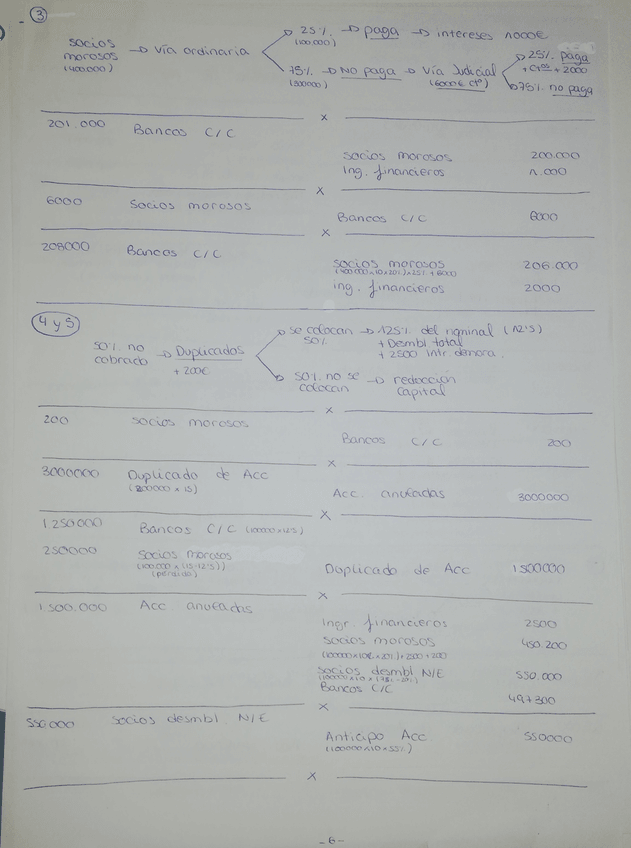 3
25% → paga → intereses 1000€
(100.000)
socios morosos → Vía ordinaria
(400.000)
75% → NO paga → Vía Judicial
(300000) (6000€ Ctº)
25% paga
+ Ctos + 2000
75% no paga
x
201.000 Bancos C/C
socios morosos 200.000
Ing. financieros 1.000
x
6000 Socios morosos
Bancos C/C 6000
x
208000 Bancos C/C
socios morosos 206.000
ing. financieros 2000
4 y 5
50% no cobrado → Duplicados
+ 200€
se colocan → 125% del nominal (12'5)
50% + Desmbl total
+ 2500 intr demora.
50% no se colocan → redocción Capital
x
200 socios morosos
Bancos C/C 200
x
3000000 Duplicado de Acc
(200000 x 15)
Acc. anuladas 3000000
x
1.250000 Bancos C/C (100000 x 12'5)
250000 Socios morosos
(100.000 x (15-12'5))
(pérdida)
Duplicado de Acc 1500000
x
1500.000 Acc anuladas
Ingr. financieros 2500
Socios morosos 450.200
socios desmbl N/E 550.000
Bancos C/C 497300
x
550000 socios desmbl. N/E
Anticipo Acc 550000
(100000 x 10 x 55%)
x
-6-